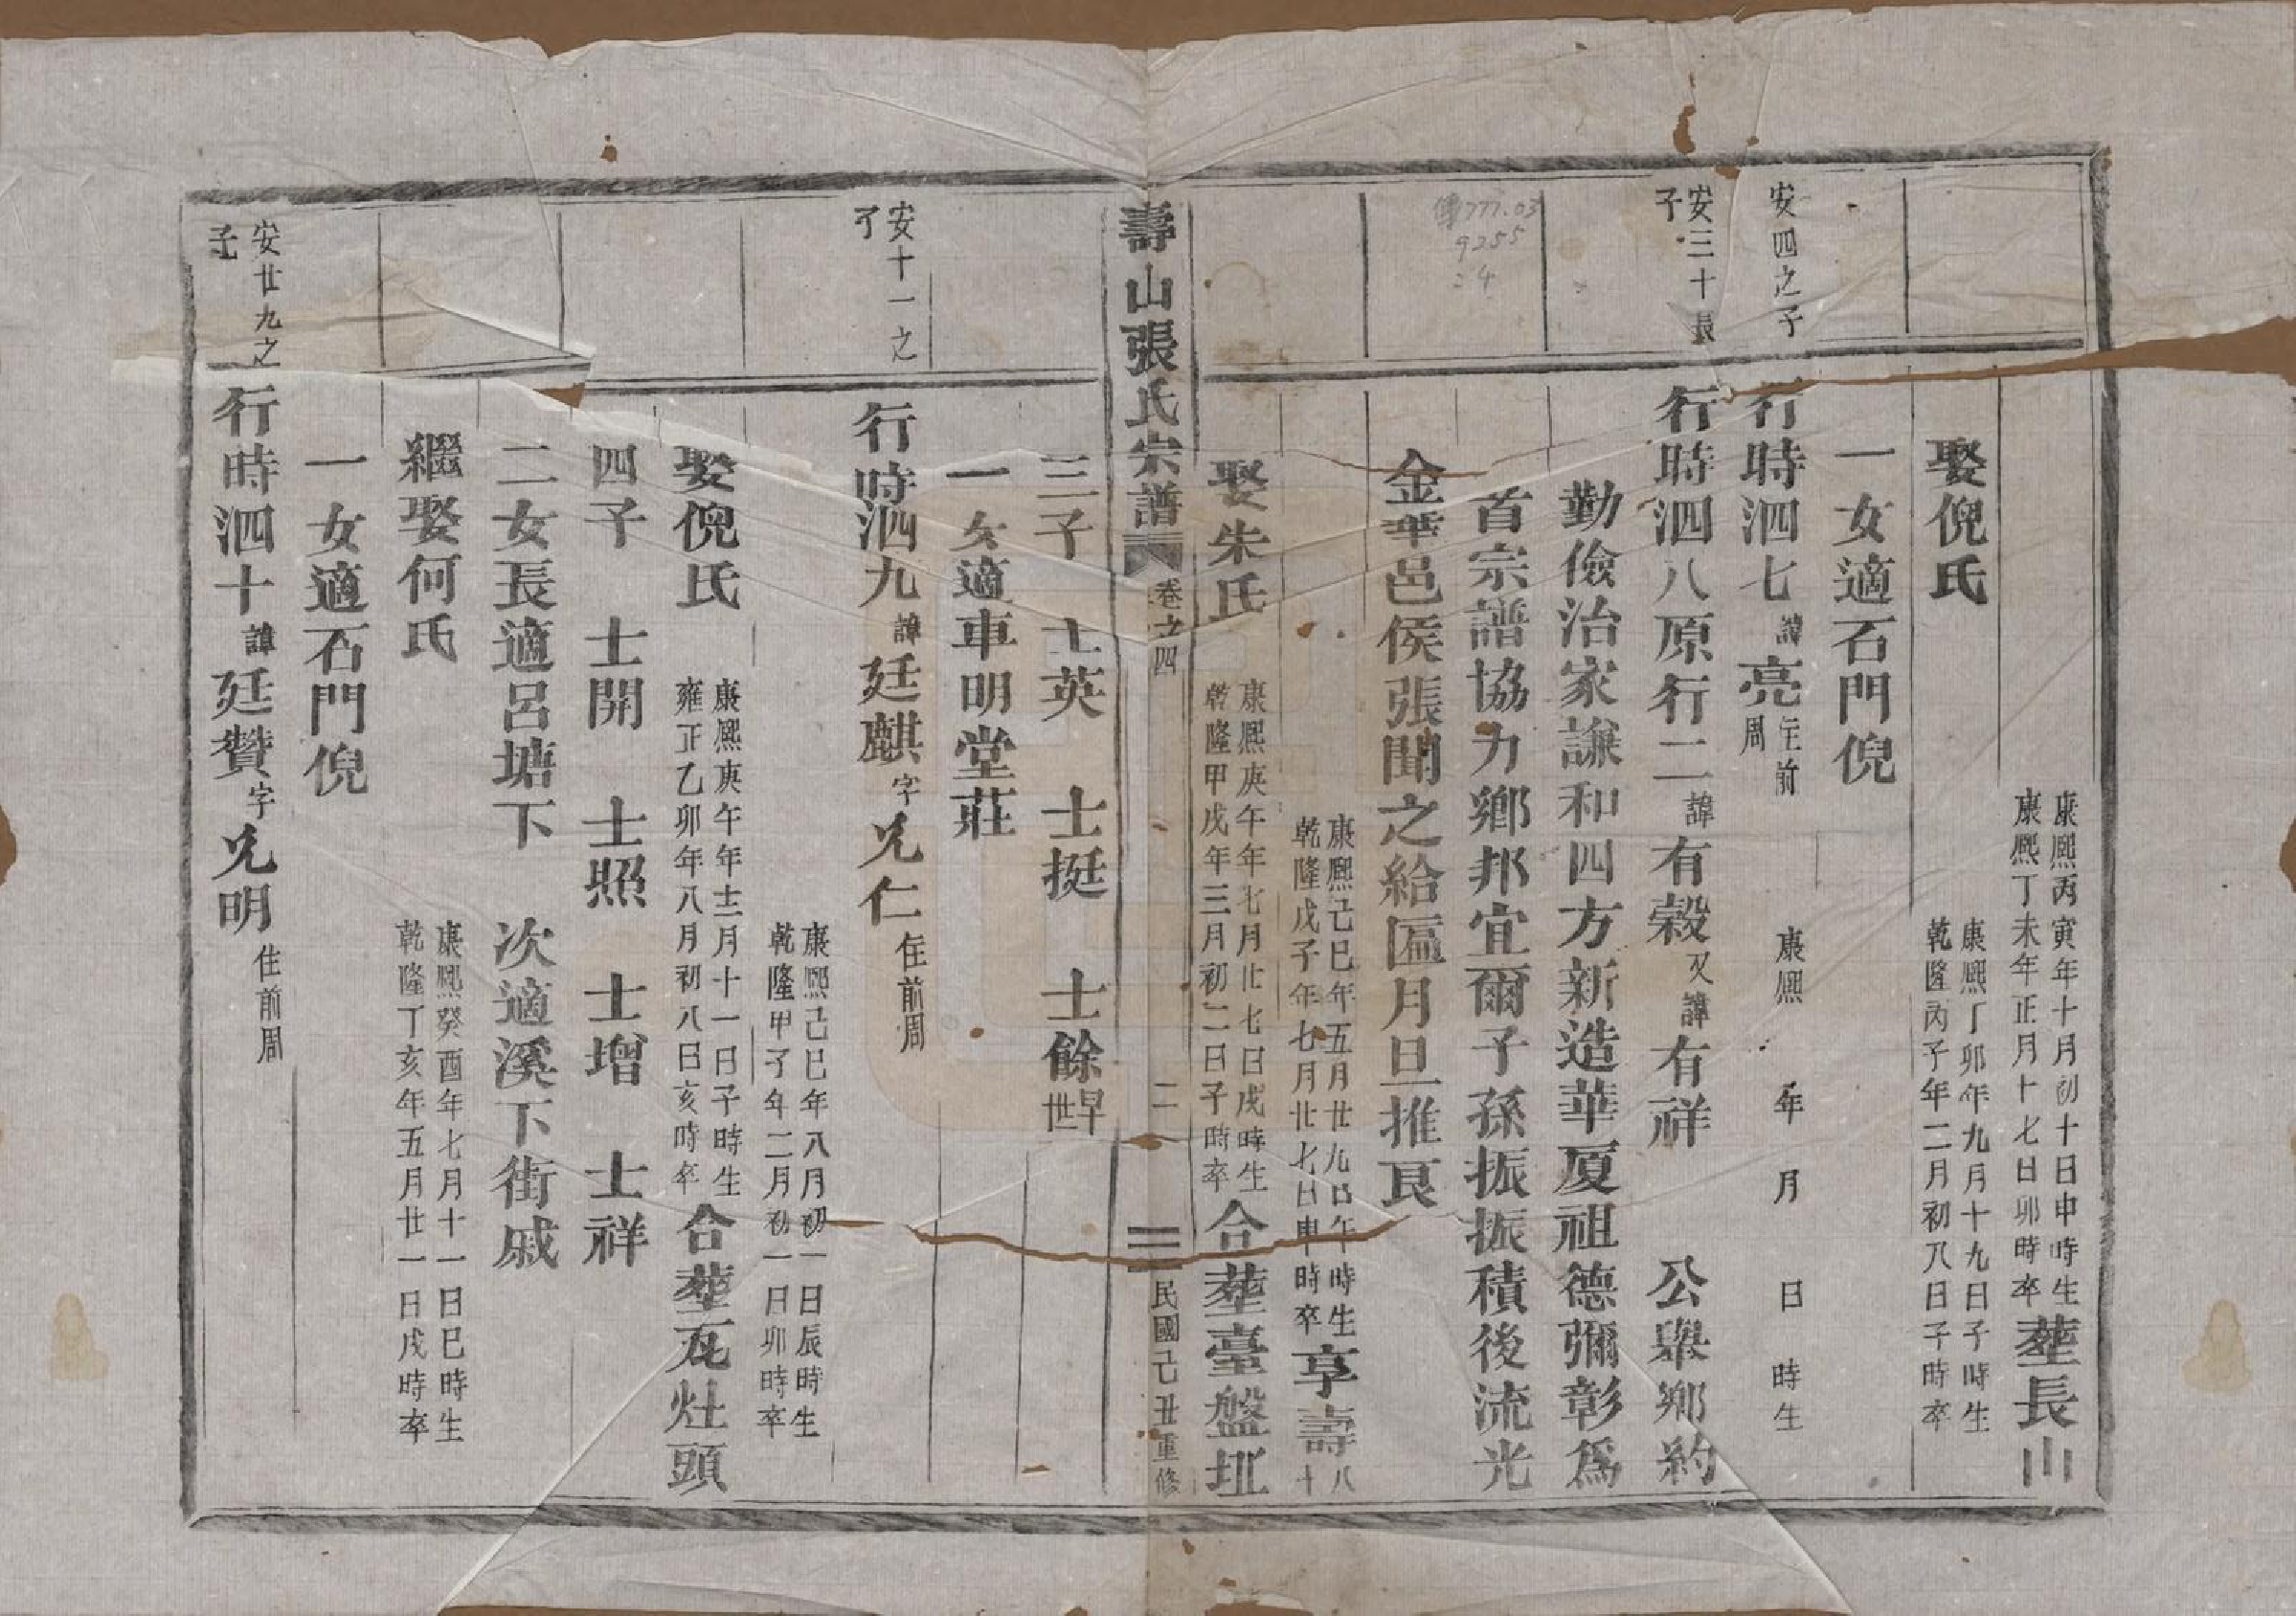 康熙丙寅年十月初十日申時生
康熙丁未年正月十七日卯時卒
塟長山
娶倪氏
康熙丁卯年九月十九日子時生
乾隆丙子年二月初八日子時卒
一女適石門倪
安四之子
行時泗七諱亮住前周
康熙 年 月 日 時生
安三十長子
行時泗八原行二諱有榖又諱有祥 公舉鄉約
勤儉治家謙和四方新造華厦祖德彌彰爲
首宗譜協力鄉邦宜爾子孫振振積後流光
傳777.03
9255
:4
金華邑侯張聞之給匾月旦推艮
康熙己巳年五月廿九日午時生
乾隆戊子年七月廿七日申時卒
享壽八十
娶朱氏
康熙庚午年七月廿七日戌時生
乾隆甲戌年三月初二日子時卒
合塟臺盤坵
壽山張氏宗譜 卷之四 二 民國己丑重修
三子 士英 士挺 士餘早世
一女適車明堂莊
安十一之子
行時泗九諱廷麒字兄仁住前周
康熙己巳年八月初一日辰時生
乾隆甲子年二月初一日卯時卒
娶倪氏
康熙庚午年十二月十一日子時生
雍正乙卯年八月初八日亥時卒
合塟瓦灶頭
四子 士開 士照 士增 士祥
二女長適呂塘下 次適溪下街戚
繼娶何氏
康熙癸酉年七月十一日巳時生
乾隆丁亥年五月廿一日戌時卒
一女適石門倪
安廿九之子
行時泗十諱廷贊字兄明住前周